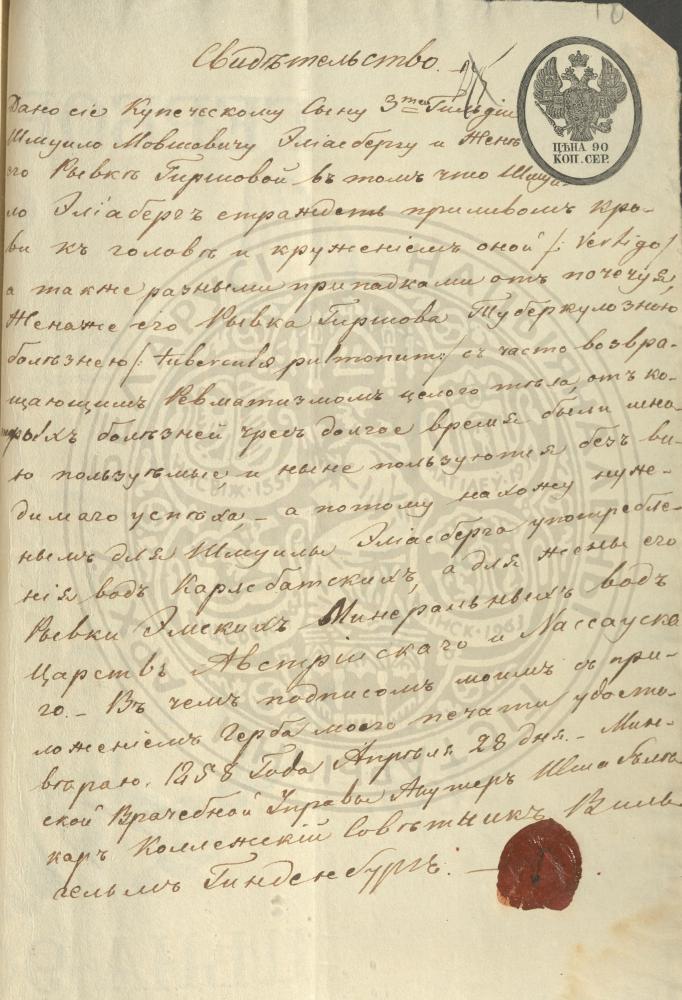 Свидѣтельство.
ЦѢНА 90
КОП. СЕР.
Дано сіе Купеческому Сыну 3-ей Гильдіи
Шмуило Мовшовичу Эліасбергу и Женѣ
его Рывкѣ Гиршовой въ томъ что Шмуи-
ло Эліасбергъ страждетъ приливомъ кро-
ви къ головѣ и круженіемъ оной /: Vertigo /
а также разными припадками отъ почечуя,
Жена же его Рывка Гиршова Туберкулозною
болѣзнею /: tubercula pulmonum :/ съ часто возвра-
щающимъ Ревматизмомъ целого тѣла, отъ ко-
рыхъ болѣзней чрезъ долгое время были мно-
ю пользуѣмые, и ныне пользуются безъ ви-
димаго успѣха, – а потому нахожу нуж-
нымъ для Шмуилы Эліасберга употребле-
нія водъ Карлсбатскихъ, а для жены его
Рывки Эмскихъ Минеральныхъ водъ
Царствъ Австрійскаго и Нассауска-
го. – Въ чемъ подписомъ моимъ съ при-
ложеніемъ Герба моего печати удосто-
вѣраю. 1858 Года Апрѣля 28 дня. – Мин-
ской Врачебной Управы Акушеръ Штабъ лѣ-
каръ Коллежскій Совѣтникъ Виль-
гельмъ Гинденбургъ. –